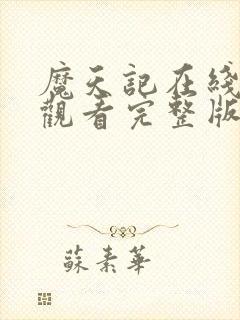 魔天記在綫
觀看完整版
蘇素華